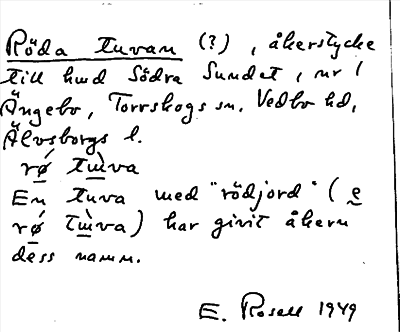 Röda tuvan (?), åkerstycke
till hmd Södra Sundet, nr 1
Ängebo, Torrskogs sn. Vedbo hd,
Älvsborgs l.
rǿ tɯ̀va
En tuva med "rödjord" (e
rǿ tɯ̀va) har givit åkern
dess namn.
E. Rosell 1949